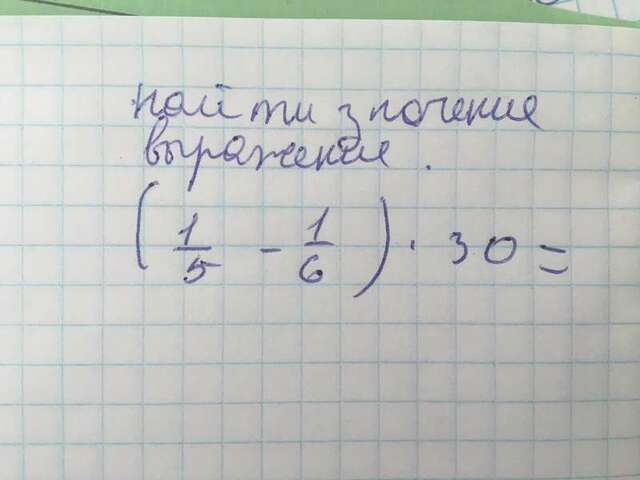 найти значение
выражения.
(1/5 - 1/6) · 30 =